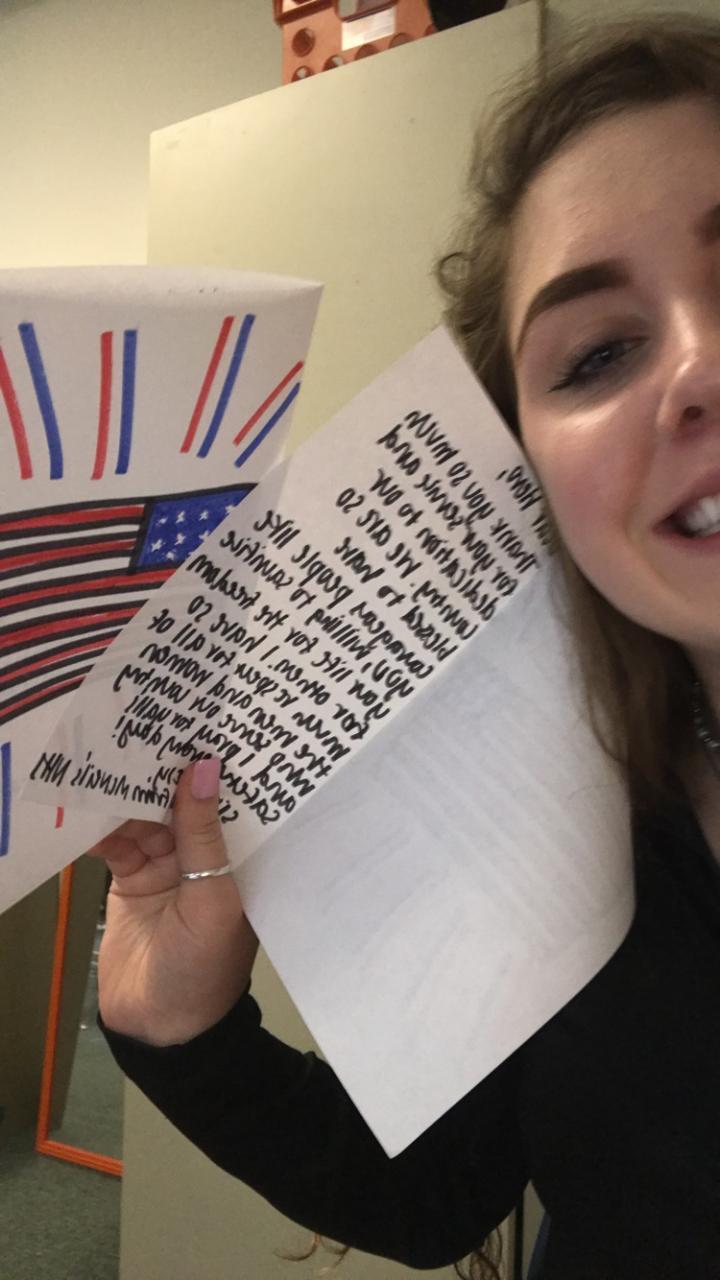 Hero,
Thank you so much
for your service and
dedication to our
country. We are so
blessed to have
courageous people like
you, willing to sacrifice
your life for the freedom
for others. I have so
much respect for all of
the men and women
who serve our country
and I pray for
day!